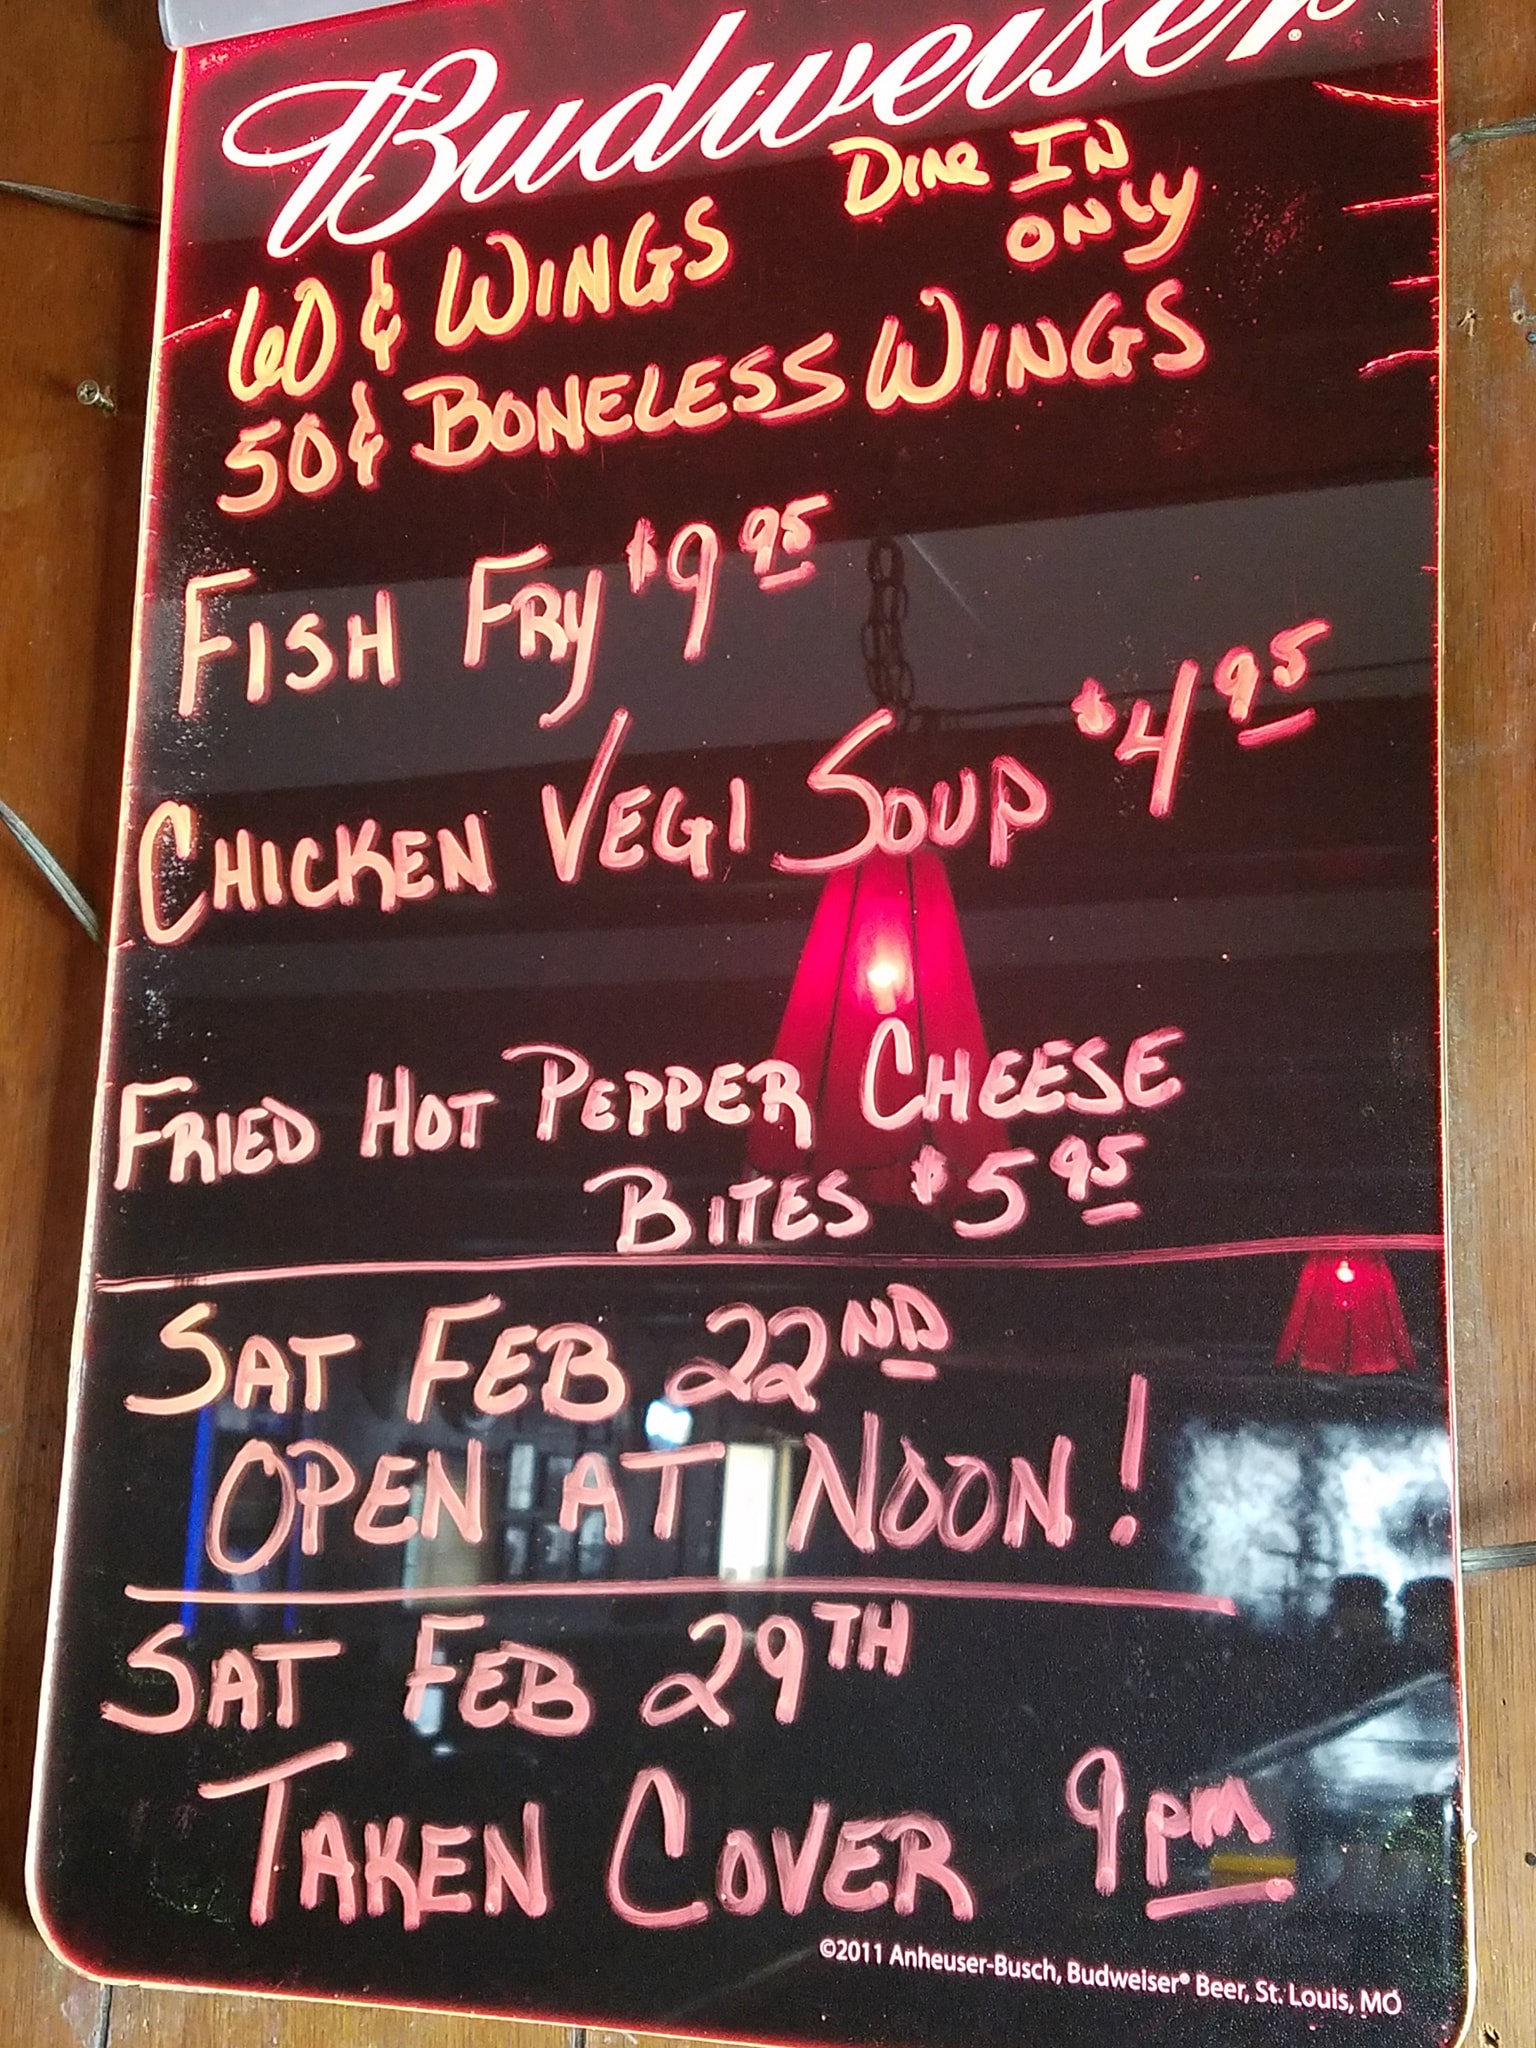 Budweiser®
DINE IN
ONLY
60¢ WINGS
50¢ BONELESS WINGS
FISH FRY $9 95
CHICKEN VEGI SOUP $4 95
FRIED HOT PEPPER CHEESE
BITES $5 95
SAT FEB 22ND
OPEN AT NOON!
SAT FEB 29TH
TAKEN COVER 9pm
©2011 Anheuser-Busch, Budweiser® Beer, St. Louis, MO